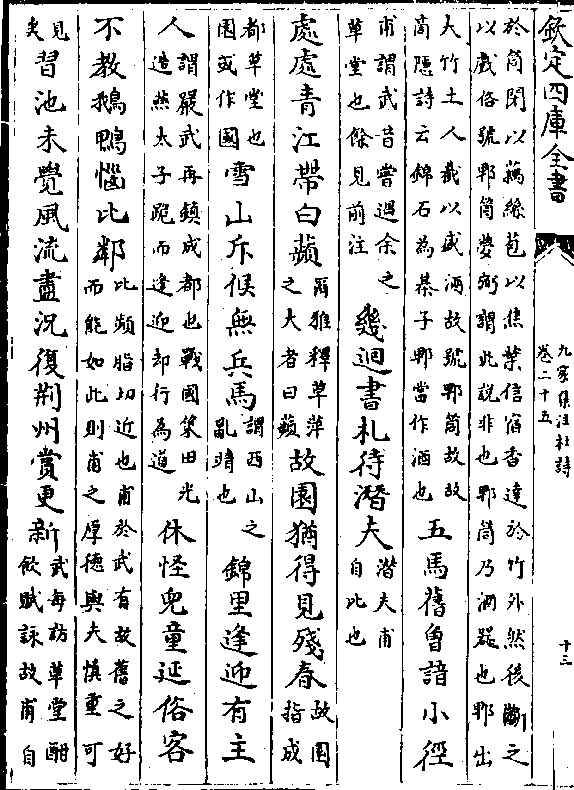 欽定四庫全書
九家集注杜詩
卷二十五
十三
於筒閉以藕絲苞以蕉葉信宿香達於竹外然後斷之
以獻俗號郫筒夢弼謂此說非也郫筒乃酒器也郫出
大竹土人截以盛酒故號郫筒故故
商隱詩云錦石為棊子郫當作酒也
五馬舊曾諳小徑
甫謂武昔嘗過余之
草堂也餘見前注
幾迴書札待潛夫
潛夫甫
自比也
處處青江帶白蘋
爾雅釋草萍
之大者曰蘋
故園猶得見殘春
故園
指成
都草堂也
園或作國
雪山斥候無兵馬
謂西山之
亂晴也
錦里逢迎有主
人
謂嚴武再鎮成都也戰國策田光
造燕太子跪而逢迎却行為道
休怪兒童延俗客
不教鵝鴨惱比鄰
比頻脂切近也甫於武有故舊之好
而能如此則甫之厚德與夫慎重可
見
矣
習池未覺風流盡況復荆州賞更新
武每訪草堂酣
飲賦詠故甫自